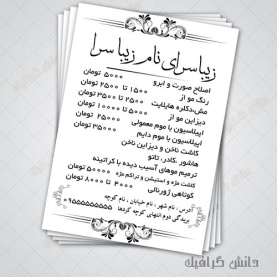 زیباسرای نام زیبا سرا
اصلاح صورت و ابرو ۵۰۰۰ تومان
رنگ مو از ۱۵۰۰ تا ۲۵۰۰ تومان
مش،دکلره هایلایت ۲۵۰۰ تا ۳۵۰۰ تومان
دیزاین مو از ۵۰۰۰ تا ۱۰۰۰۰ تومان
اپیلاسیون با موم معمولی ۲۵۰۰۰ تومان
اپیلاسیون با موم دایم ۳۵۰۰۰ تومان
کاشت ناخن و دیزاین ناخن
هاشور ،کادر، تاتو
ترمیم موهای آسیب دیده با کراتینه
کاشت مژه و اکستیشن و تراکم مژه ۵۰۰۰۰ تومان
کوتاهی ژورنالی ۴۰۰۰ تا ۸۰۰۰ تومان
آدرس : نام شهر ، نام خیابان ، نام کوچه
بریدگی دوم انتهای کوچه گردها ۰۹۵۵۵۵۵۵۵۵
دانش گرافیک